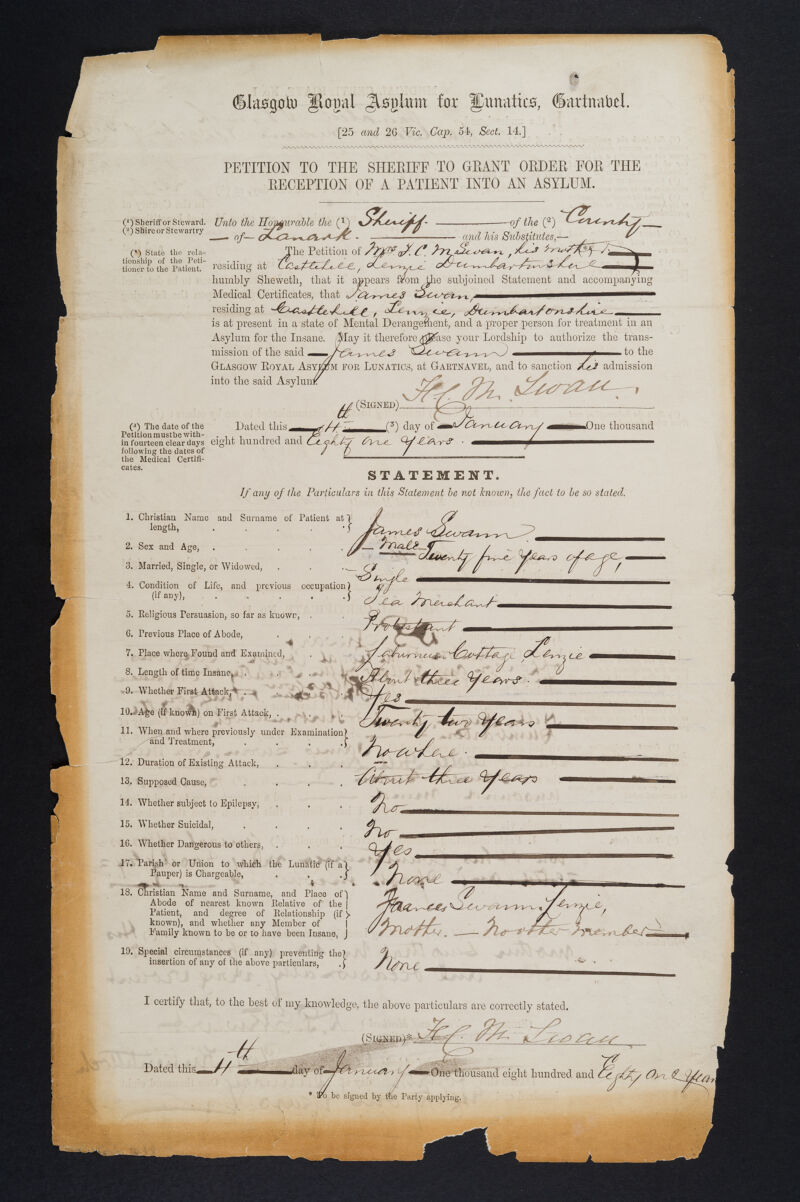 Glasgow Royal Asylum for Lunatics, Gartnavel.
[25 and 26 Vic. Cap. 54, Sect. 14.]
PETITION TO THE SHERIFF TO GRANT ORDER FOR THE
RECEPTION OF A PATIENT INTO AN ASYLUM.
(1) Sheriff or Steward.
(2) Shire or Stewartry
Unto the Honourable the (1) Sheriff of the (2) County
of Lanark. and his Substitutes,—
(3) State the relationship of the Petitioner to the Patient.
The Petition of Mrs F. C. M. Swan, his mother
residing at Castlehill, Lenzie Dumbartonshire
humbly Sheweth, that it appears from the subjoined Statement and accompanying
Medical Certificates, that James Swan,
residing at Castlehill, Lenzie, Dumbartonshire
is at present in a state of Mental Derangement, and a proper person for treatment in an
Asylum for the Insane. May it therefore please your Lordship to authorize the trans-
mission of the said James Swann to the
GLASGOW ROYAL ASYLUM FOR LUNATICS, at GARTNAVEL, and to sanction his admission
into the said Asylum.
(SIGNED) M. Swan.
(3) The date of the
Petition must be with-
in fourteen clear days
following the dates of
the Medical Certifi-
cates.
Dated this 4th (3) day of January One thousand
eight hundred and Eighty one Years.
STATEMENT.
If any of the Particulars in this Statement be not known, the fact to be so stated.
1. Christian Name and Surname of Patient at length, James Swann
2. Sex and Age, Male Twenty five Years of age,
3. Married, Single, or Widowed, Single
4. Condition of Life, and previous occupation (if any), Tea Merchant
5. Religious Persuasion, so far as known, Protestant
6. Previous Place of Abode,
7. Place where Found and Examined, Laburnum Cottage Lenzie
8. Length of time Insane, About three Years.
9. Whether First Attack, Yes
10. Age (if known) on First Attack, Twenty two Years
11. When and where previously under Examination and Treatment, Nowhere.
12. Duration of Existing Attack, About three Years
13. Supposed Cause,
14. Whether subject to Epilepsy, No
15. Whether Suicidal, No
16. Whether Dangerous to others, Yes
17. Parish or Union to which the Lunatic (if a Pauper) is Chargeable, None
18. Christian Name and Surname, and Place of
Abode of nearest known Relative of the
Patient, and degree of Relationship (if
known), and whether any Member of
Family known to be or to have been Insane,
Frances Swann, Lenzie,
Mother. — No other member
19. Special circumstances (if any) preventing the insertion of any of the above particulars, None
I certify that, to the best of my knowledge, the above particulars are correctly stated.
(SIGNED)* M. Swan
Dated this 4th day of January One thousand eight hundred and Eighty one Years
* To be signed by the Party applying.